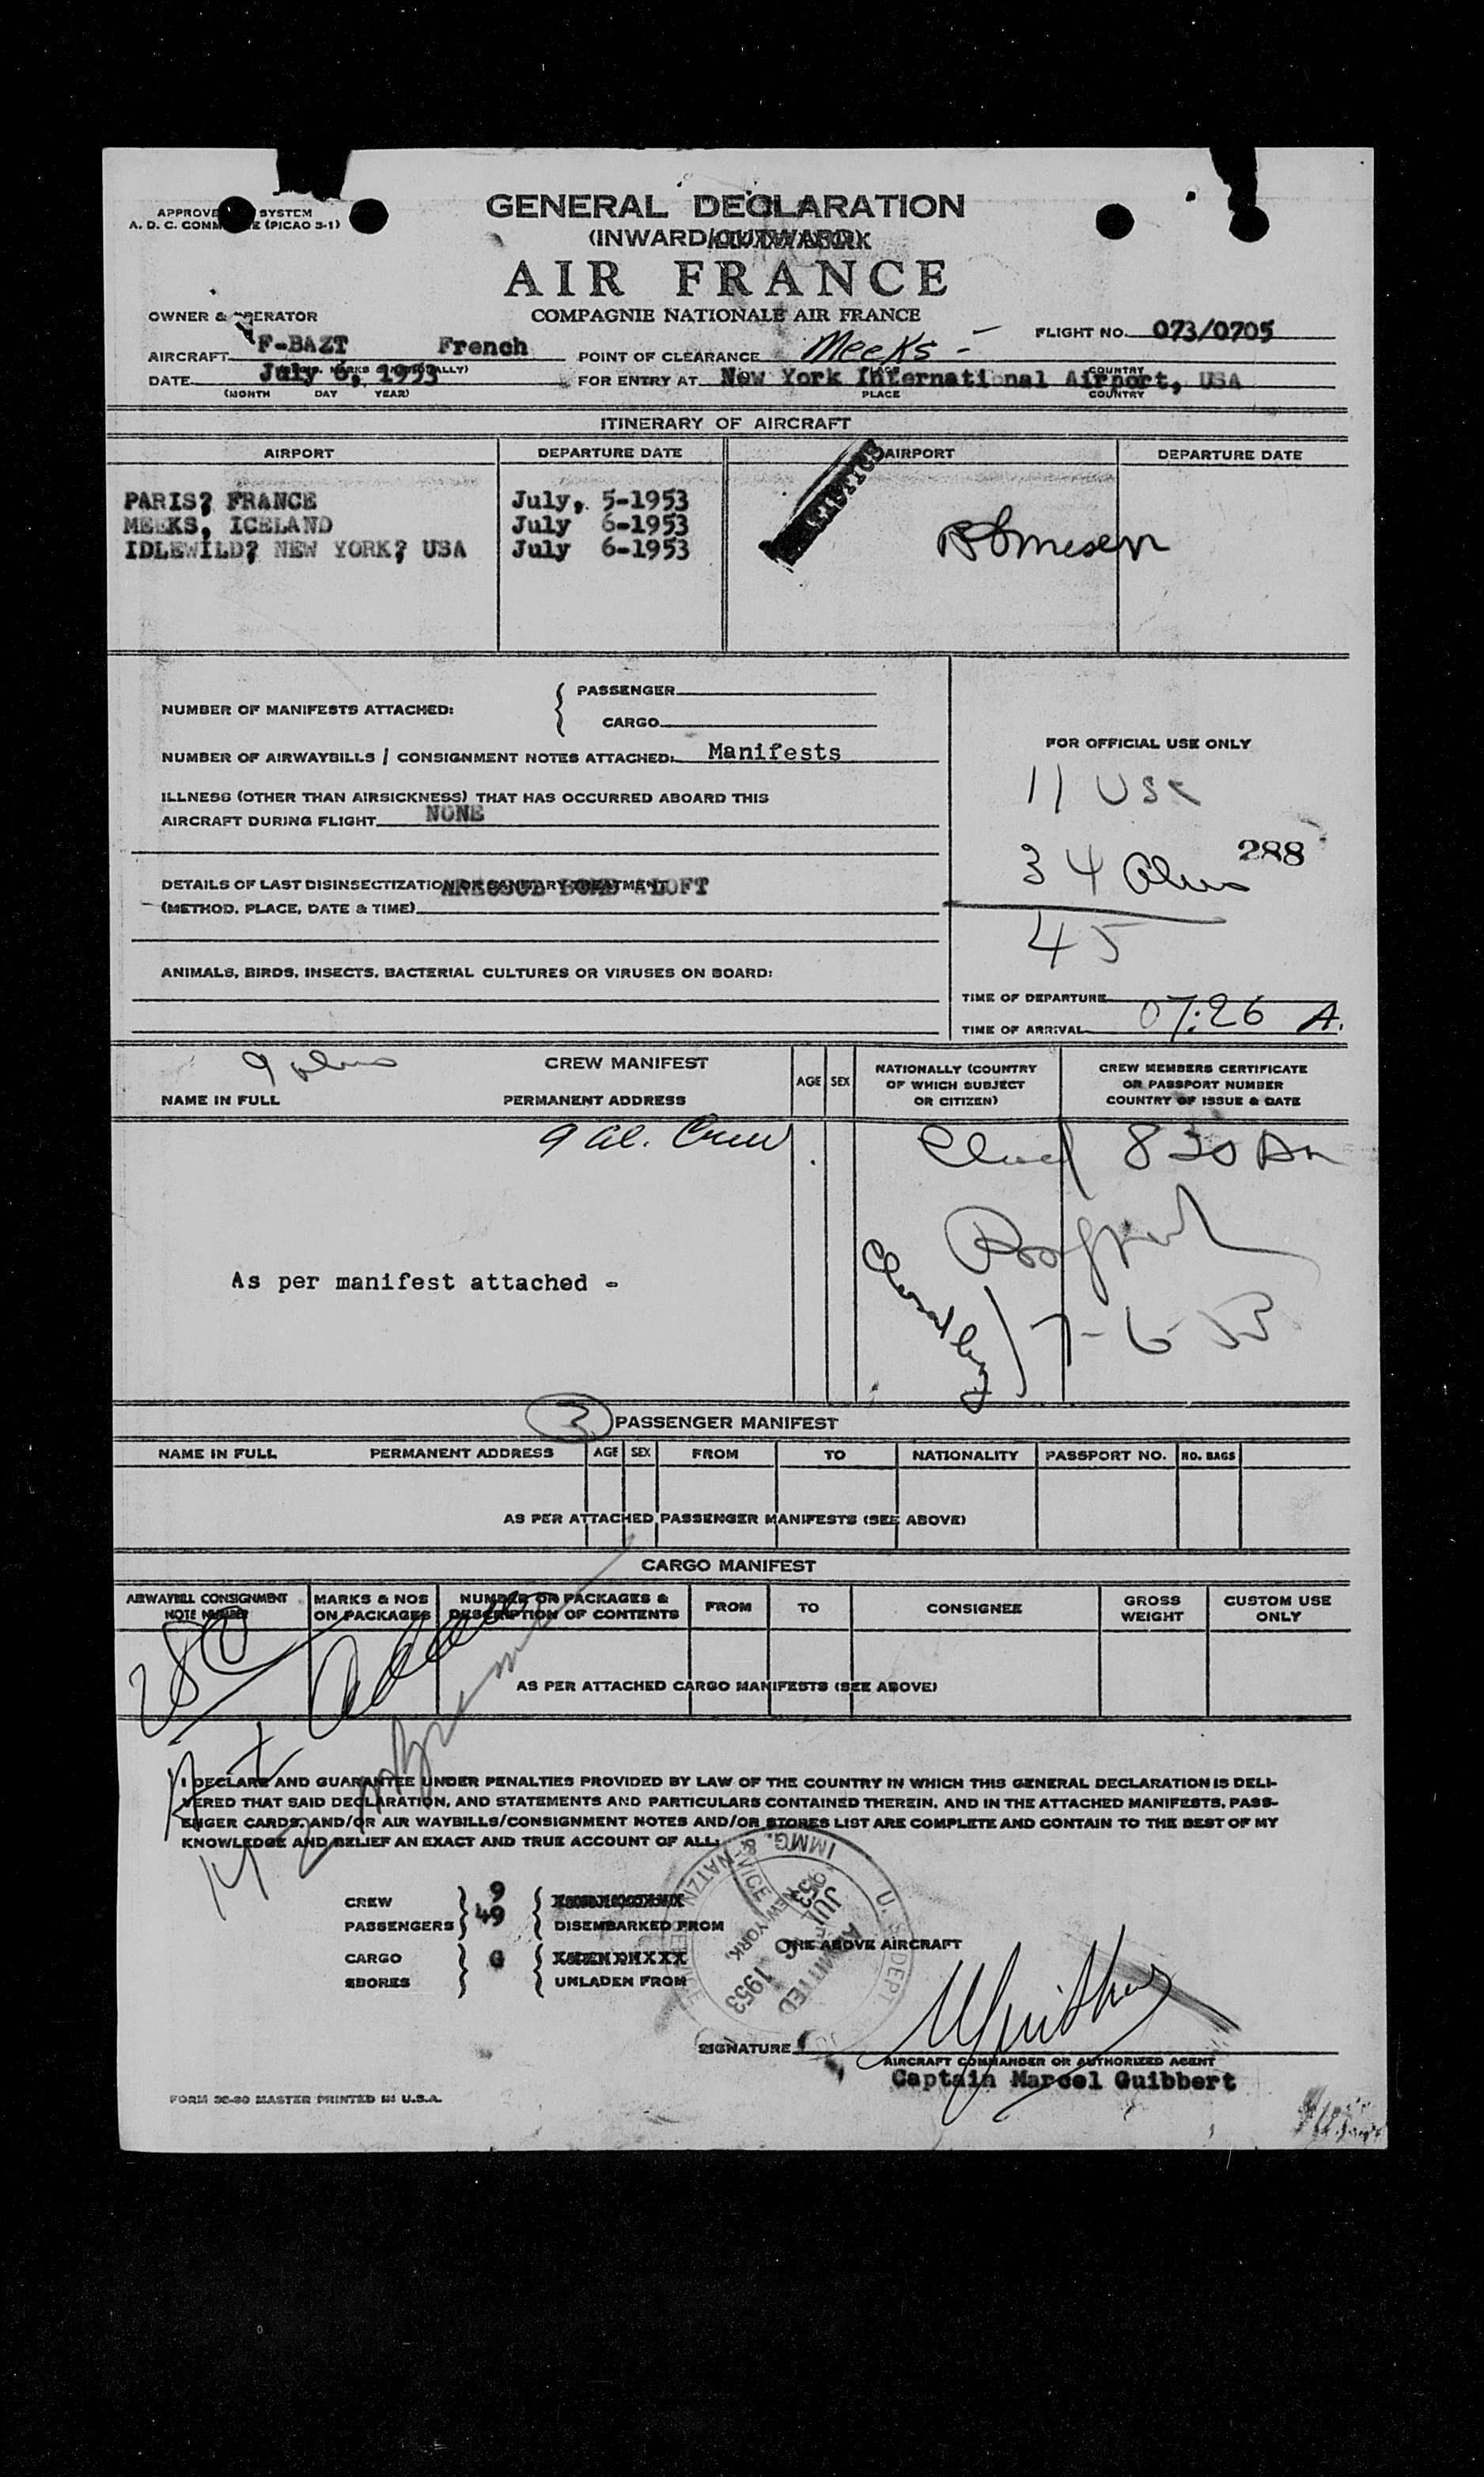 GENERAL DECLARATION
(INWARD/OUTWARD)
AIR FRANCE
COMPAGNIE NATIONALE AIR FRANCE
APPROVE SYSTEM
A. D. C. COMM E (PICAO 3-1)
OWNER & OPERATOR
FLIGHT NO. 073/0705
AIRCRAFT F-BAZT French
POINT OF CLEARANCE Meeks -
DATE July 6, 1953
(MONTH DAY YEAR)
FOR ENTRY AT New York International Airport, USA
PLACE COUNTRY
ITINERARY OF AIRCRAFT
AIRPORT DEPARTURE DATE AIRPORT DEPARTURE DATE
PARIS? FRANCE July, 5-1953
MEEKS, ICELAND July 6-1953
IDLEWILD? NEW YORK? USA July 6-1953
NUMBER OF MANIFESTS ATTACHED:
PASSENGER
CARGO
NUMBER OF AIRWAYBILLS / CONSIGNMENT NOTES ATTACHED: Manifests
ILLNESS (OTHER THAN AIRSICKNESS) THAT HAS OCCURRED ABOARD THIS
AIRCRAFT DURING FLIGHT NONE
DETAILS OF LAST DISINSECTIZATION OR SANITARY TREATMENT ALOFT
(METHOD, PLACE, DATE & TIME)
ANIMALS, BIRDS, INSECTS, BACTERIAL CULTURES OR VIRUSES ON BOARD:
FOR OFFICIAL USE ONLY
11 USC
34 Alns
288
45
TIME OF DEPARTURE
TIME OF ARRIVAL 07:26 A.
9 alns
CREW MANIFEST
NAME IN FULL PERMANENT ADDRESS
AGE SEX
NATIONALLY (COUNTRY
OF WHICH SUBJECT
OR CITIZEN)
CREW MEMBERS CERTIFICATE
OR PASSPORT NUMBER
COUNTRY OF ISSUE & DATE
9 al. Crew
830 Am
As per manifest attached -
7-6-53
3
PASSENGER MANIFEST
NAME IN FULL PERMANENT ADDRESS AGE SEX FROM TO NATIONALITY PASSPORT NO. NO. BAGS
AS PER ATTACHED PASSENGER MANIFESTS (SEE ABOVE)
CARGO MANIFEST
AIRWAYBILL CONSIGNMENT
NOTE NUMBER
MARKS & NOS
ON PACKAGES
NUMBER OR PACKAGES &
DESCRIPTION OF CONTENTS
FROM TO CONSIGNEE
GROSS
WEIGHT
CUSTOM USE
ONLY
AS PER ATTACHED CARGO MANIFESTS (SEE ABOVE)
I DECLARE AND GUARANTEE UNDER PENALTIES PROVIDED BY LAW OF THE COUNTRY IN WHICH THIS GENERAL DECLARATION IS DELI-
VERED THAT SAID DECLARATION, AND STATEMENTS AND PARTICULARS CONTAINED THEREIN, AND IN THE ATTACHED MANIFESTS, PASS-
ENGER CARDS, AND/OR AIR WAYBILLS/CONSIGNMENT NOTES AND/OR STORES LIST ARE COMPLETE AND CONTAIN TO THE BEST OF MY
KNOWLEDGE AND BELIEF AN EXACT AND TRUE ACCOUNT OF ALL:
CREW 9
PASSENGERS 49
DISEMBARKED FROM
THE ABOVE AIRCRAFT
CARGO
STORES
UNLADEN FROM
ADMITTED
JUL 6 1953
NEW YORK,
SIGNATURE
AIRCRAFT COMMANDER OR AUTHORIZED AGENT
Captain Marcel Guibbert
FORM 30-90 MASTER PRINTED IN U.S.A.